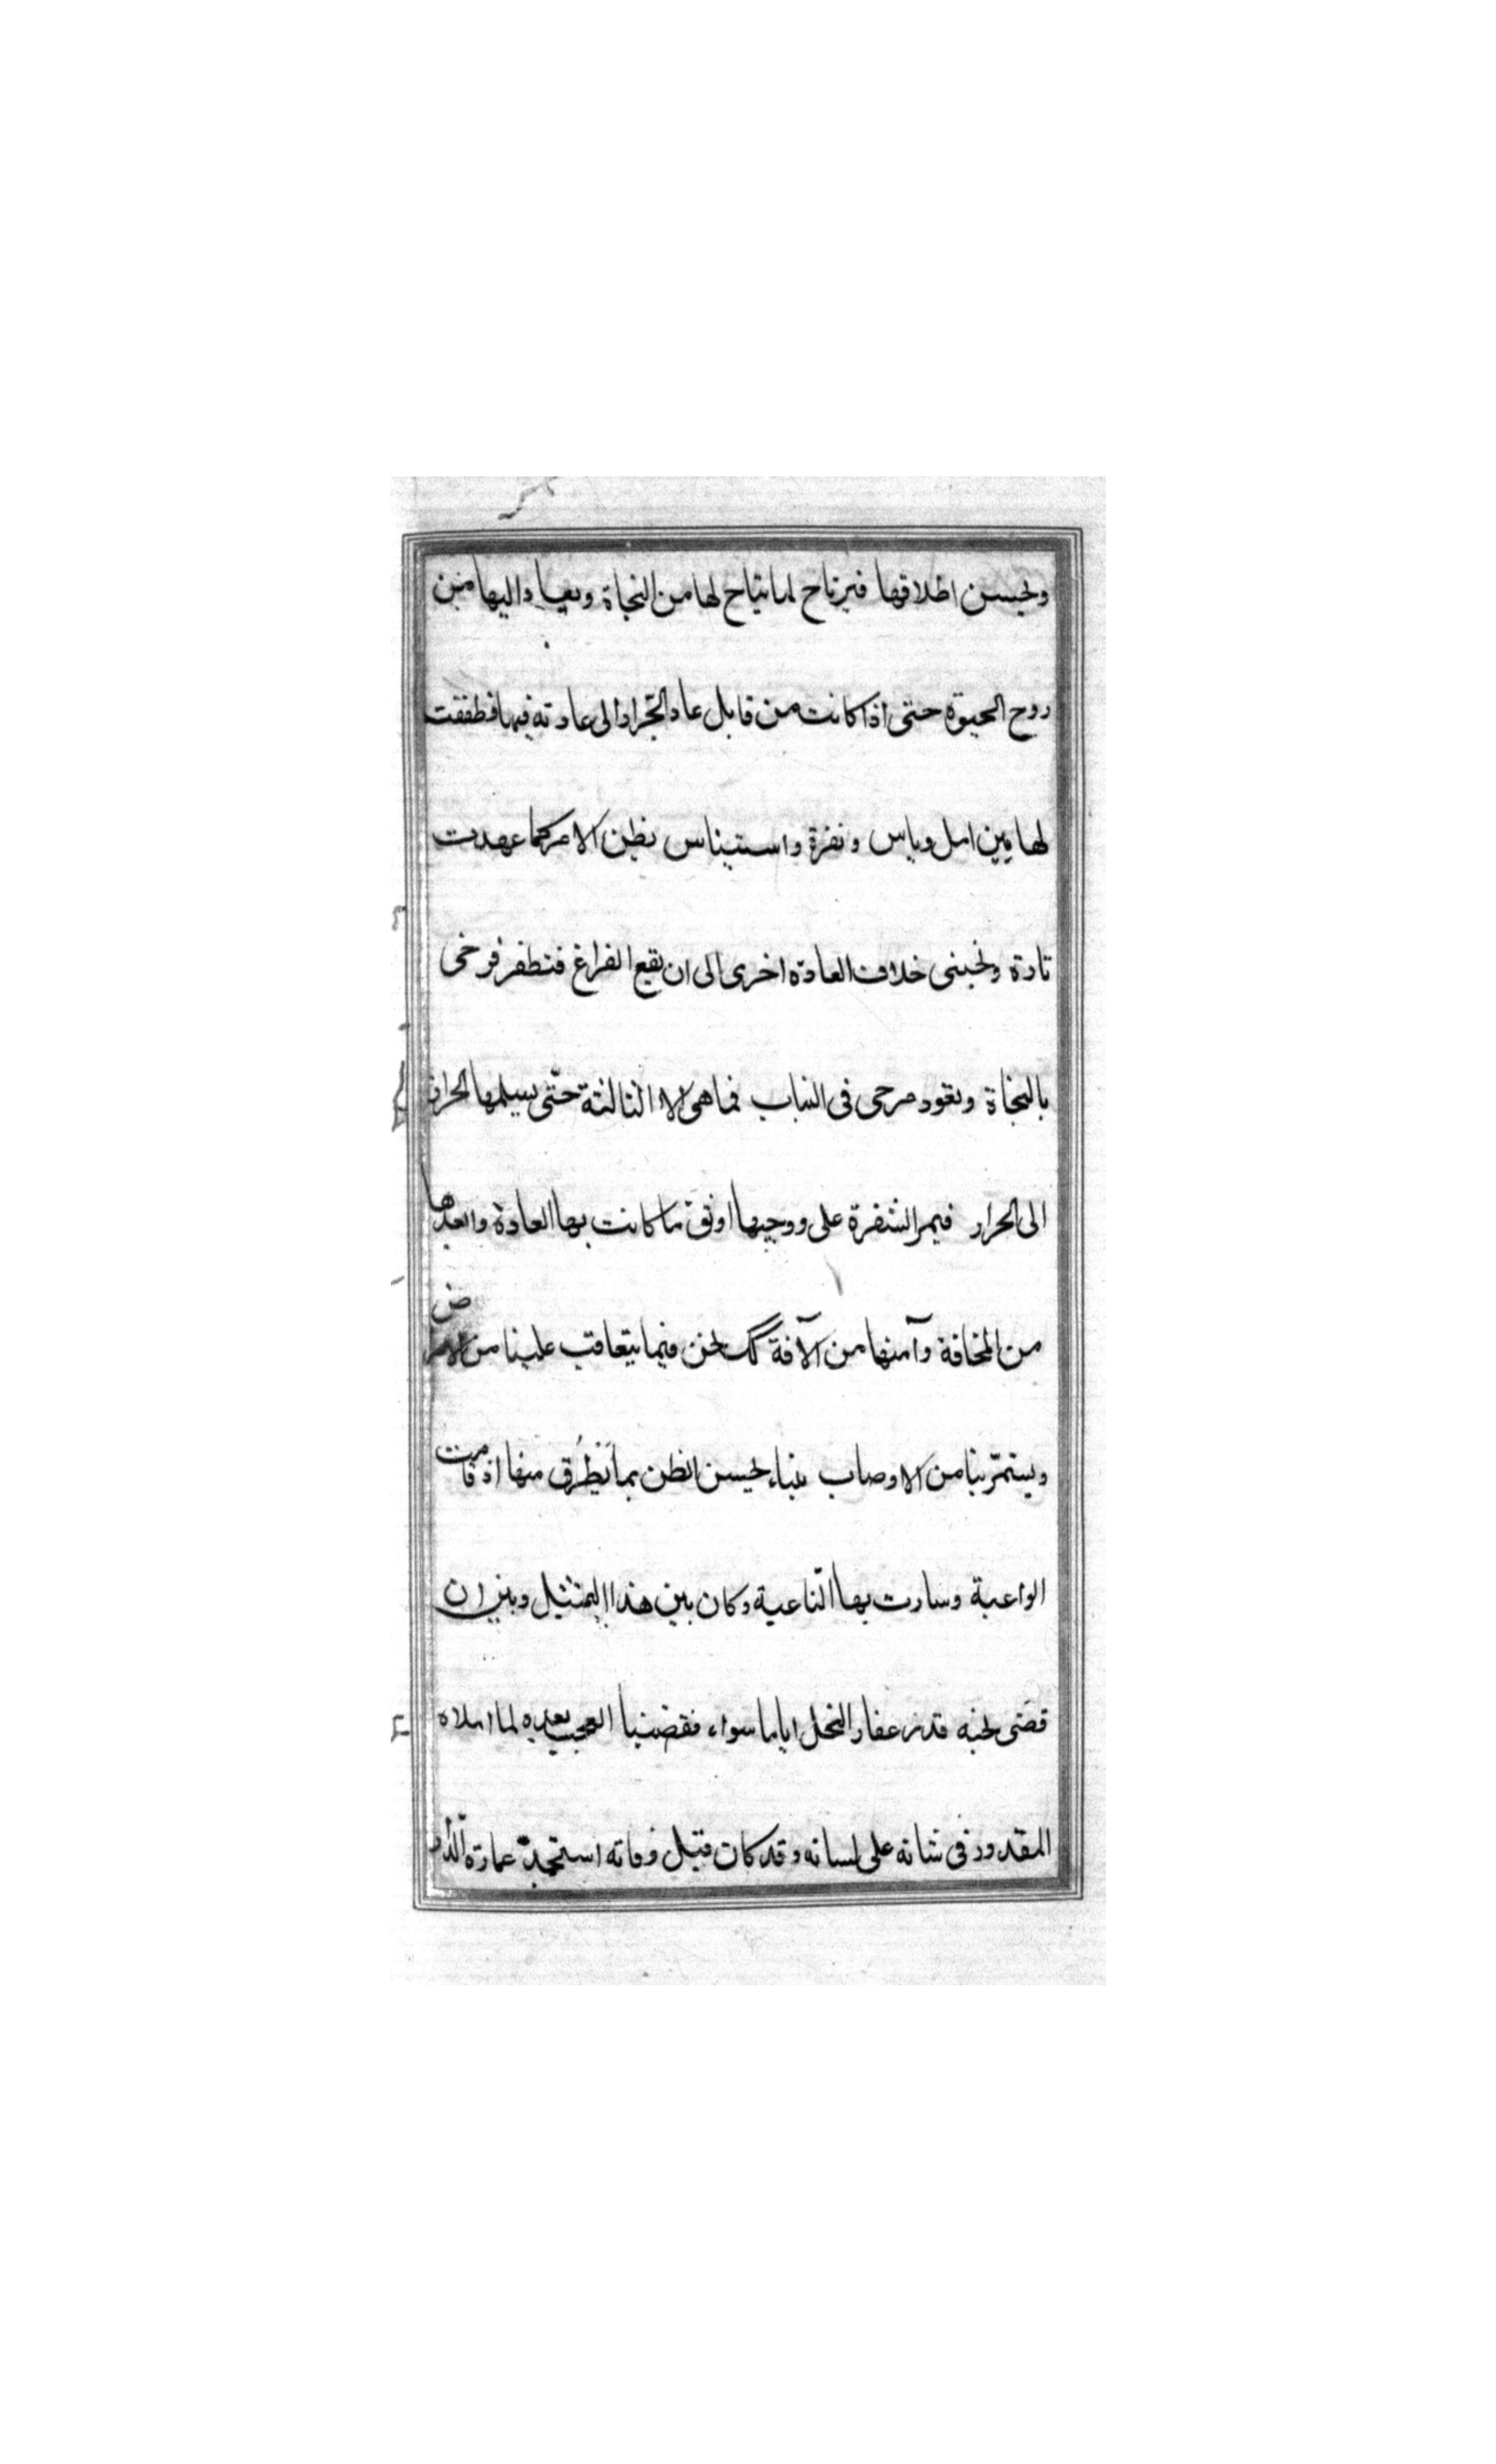 ويحسن اطلاقها فيرتاح لما يتاح لها من النجاة ويعاد اليها من
روح الحيوة حتى اذا كانت من قابل عاد الجزار الى عادته فيها فطفقت
لها بين امل وياس ونفرة واستيناس يظن الامر كما عهدت
تارة وتخشى خلاف العادة اخرى الى ان يقع الفراغ فتطفر فرحى
بالنجاة وتعود مرحى فى الشباب فما هى الا الثالثة حتى يسلمها الجزاز
الى الجزار فيمر الشفرة على ودجيها اوثق ما كانت بها العادة وابعدها
من المخافة وآمنها من الآفة كك نحن فيما يتعاقب علينا من الامراض
ويستمر بنا من الاوصاب بناء لحسن الظن بما يطرق منها اذ قامت
الواعية وسارت بها الناعية وكان بين هذا التمثيل وبين ان
قضى نحبه قدر عفار النخل اياما سواء فقضينا العجب بعده لما املاه
المقدور فى شانه على لسانه وقد كان قبل وفاته استجد عمارة الدار